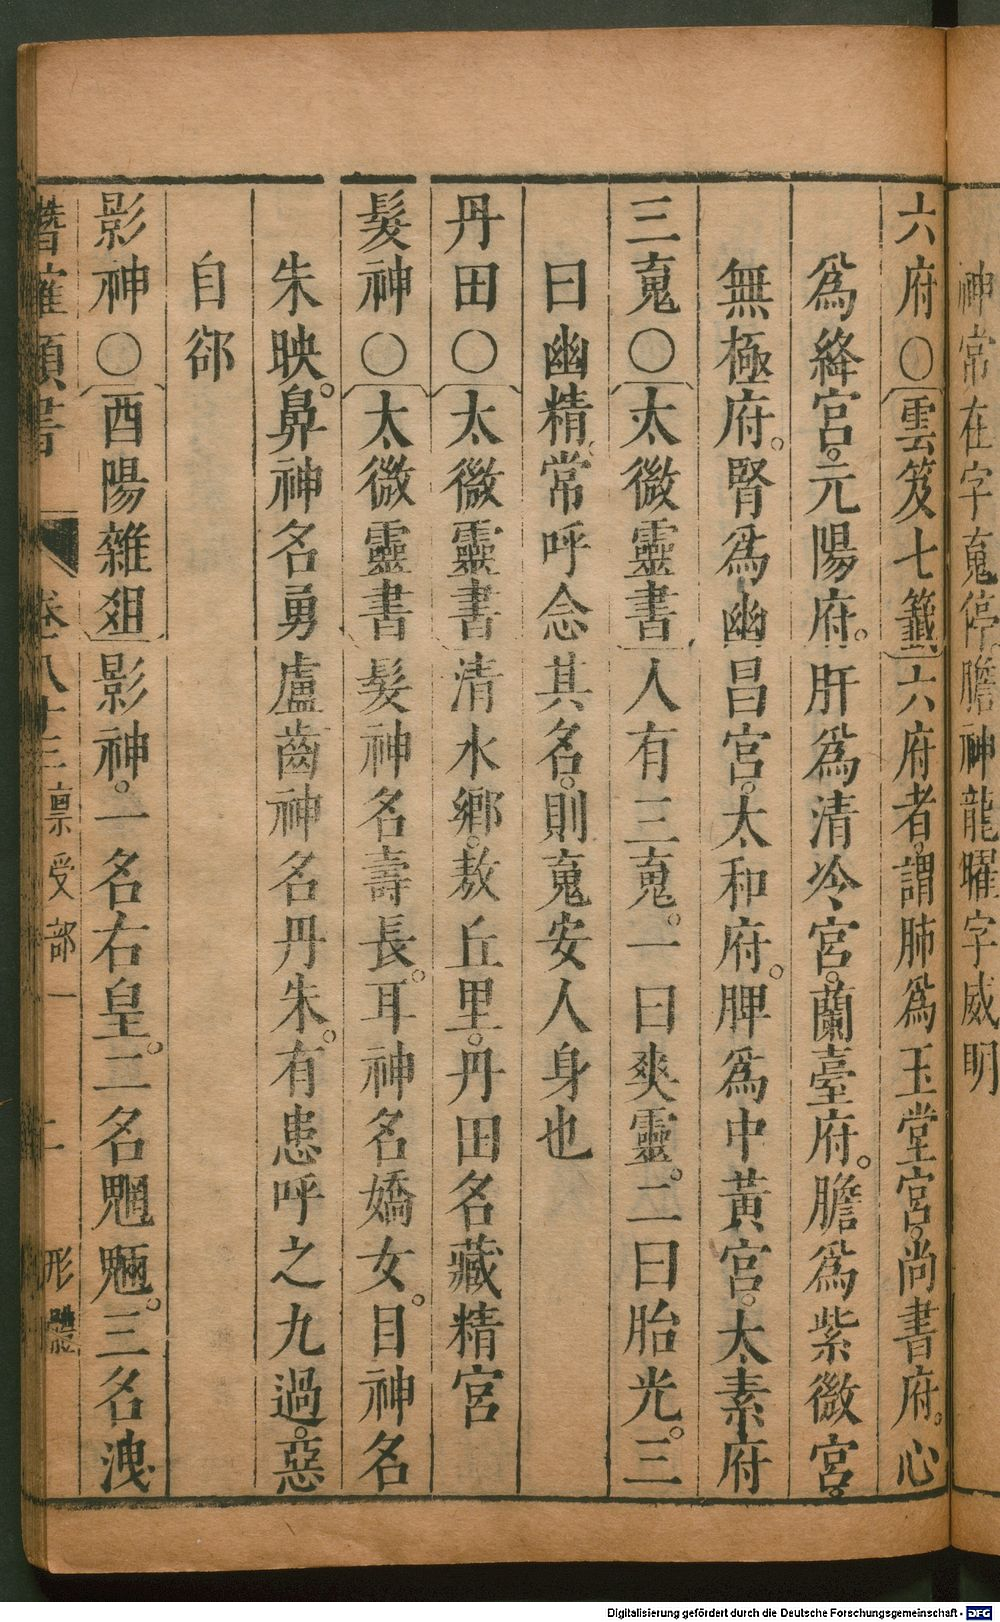 神常在字䰟停。膽神龍曜字威明
六府○〔雲笈七籤〕六府者。謂肺爲玉堂宮。尚書府。心
爲絳宮。元陽府。肝爲清冷宮。蘭臺府。膽爲紫微宮。
無極府。腎爲幽昌宮。太和府。脾爲中黃宮。太素府
三䰟○〔太微靈書〕人有三䰟。一曰爽靈。二曰胎光。三
曰幽精。常呼念其名。則䰟安人身也
丹田○〔太微靈書〕清水鄉。敖丘里。丹田名藏精宮
髮神○〔太微靈書〕髮神名壽長。耳神名嬌女。目神名
朱映。鼻神名勇盧齒神名丹朱。有患呼之九過。惡
自郤
影神○〔酉陽雜俎〕影神。一名右皇。二名魍魎。三名洩
潛確類書 卷八十三禀受部一 二 形體
Digitalisierung gefördert durch die Deutsche Forschungsgemeinschaft - DFG